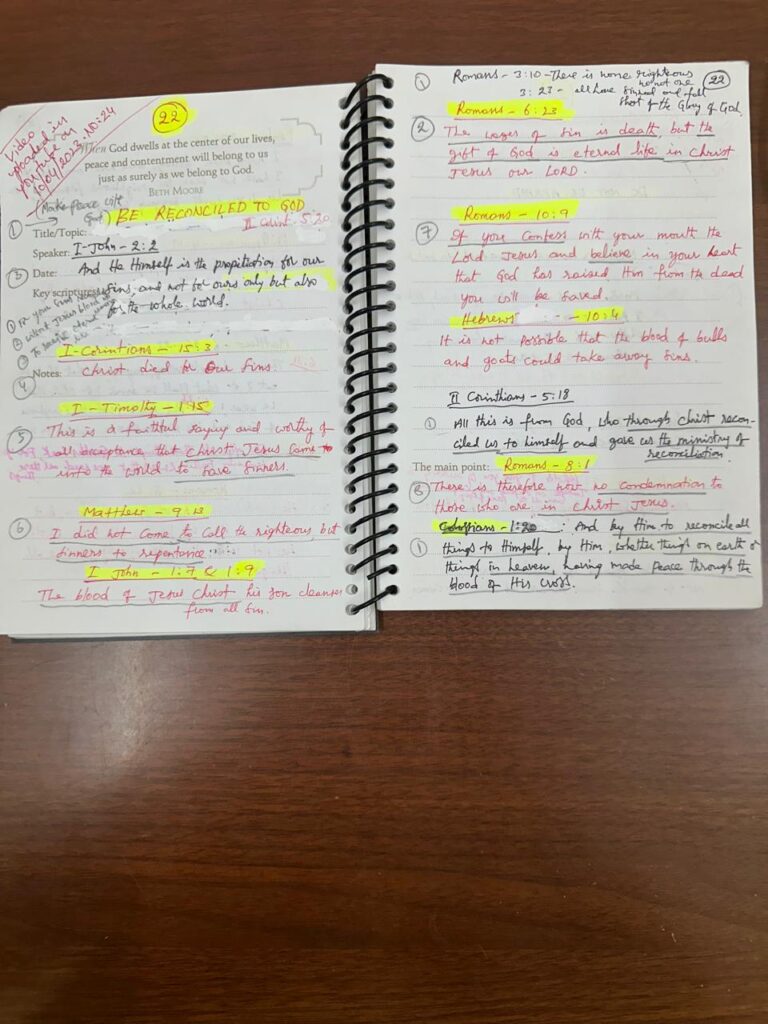 Video
uploaded in
youtube on
10/04/2023. NO:24
22
When God dwells at the center of our lives,
peace and contentment will belong to us
just as surely as we belong to God.
BETH MOORE
(Make peace with
God)
BE RECONCILED TO GOD
① Title/Topic:
II Corint. 5:20
Speaker: I-John - 2:2
③ Date: And He Himself is the propitiation for our
Key scriptures: sins, and not for ours only but also
for the whole world.
I-Corintians - 15:3
④ Notes: Christ died for Our Sins
I - Timolty - 1:15
⑤ This is a faithful saying and worthy of
all acceptance that Christ Jesus Came to
into the world to Save Sinners.
Matthew - 9:13
⑥ I did not Come to Call the righteous, but
Sinners to repentance.
I John - 1:7 & 1:9
The blood of Jesus Christ his son cleanses
from all Sin.
① Romans - 3:10 - There is none righteous
no not one
22
3:23 - all have Sinned and fall
Short of the Glory of God.
Romans - 6:23
② The wages of Sin is death, but the
gift of God is eternal life in Christ
Jesus our LORD.
Romans - 10:9
⑦ If you Confess with your mouth the
Lord Jesus and believe in your heart
that God has raised Him from the dead
you will be Saved.
Hebrews - 10:4
It is not possible that the blood of bulls
and goats could take away Sins.
II Corinthians - 5:18
① All this is from God, who through Christ recon-
ciled us to himself and gave us the ministry of
reconciliation.
The main point: Romans - 8:1
⑧ There is therefore now no Condemnation to
those who are in Christ Jesus.
- 1:20 : And by Him to reconcile all
① things to Himself, by Him, whether things on earth or
things in heaven, having made peace through the
blood of His Cross.